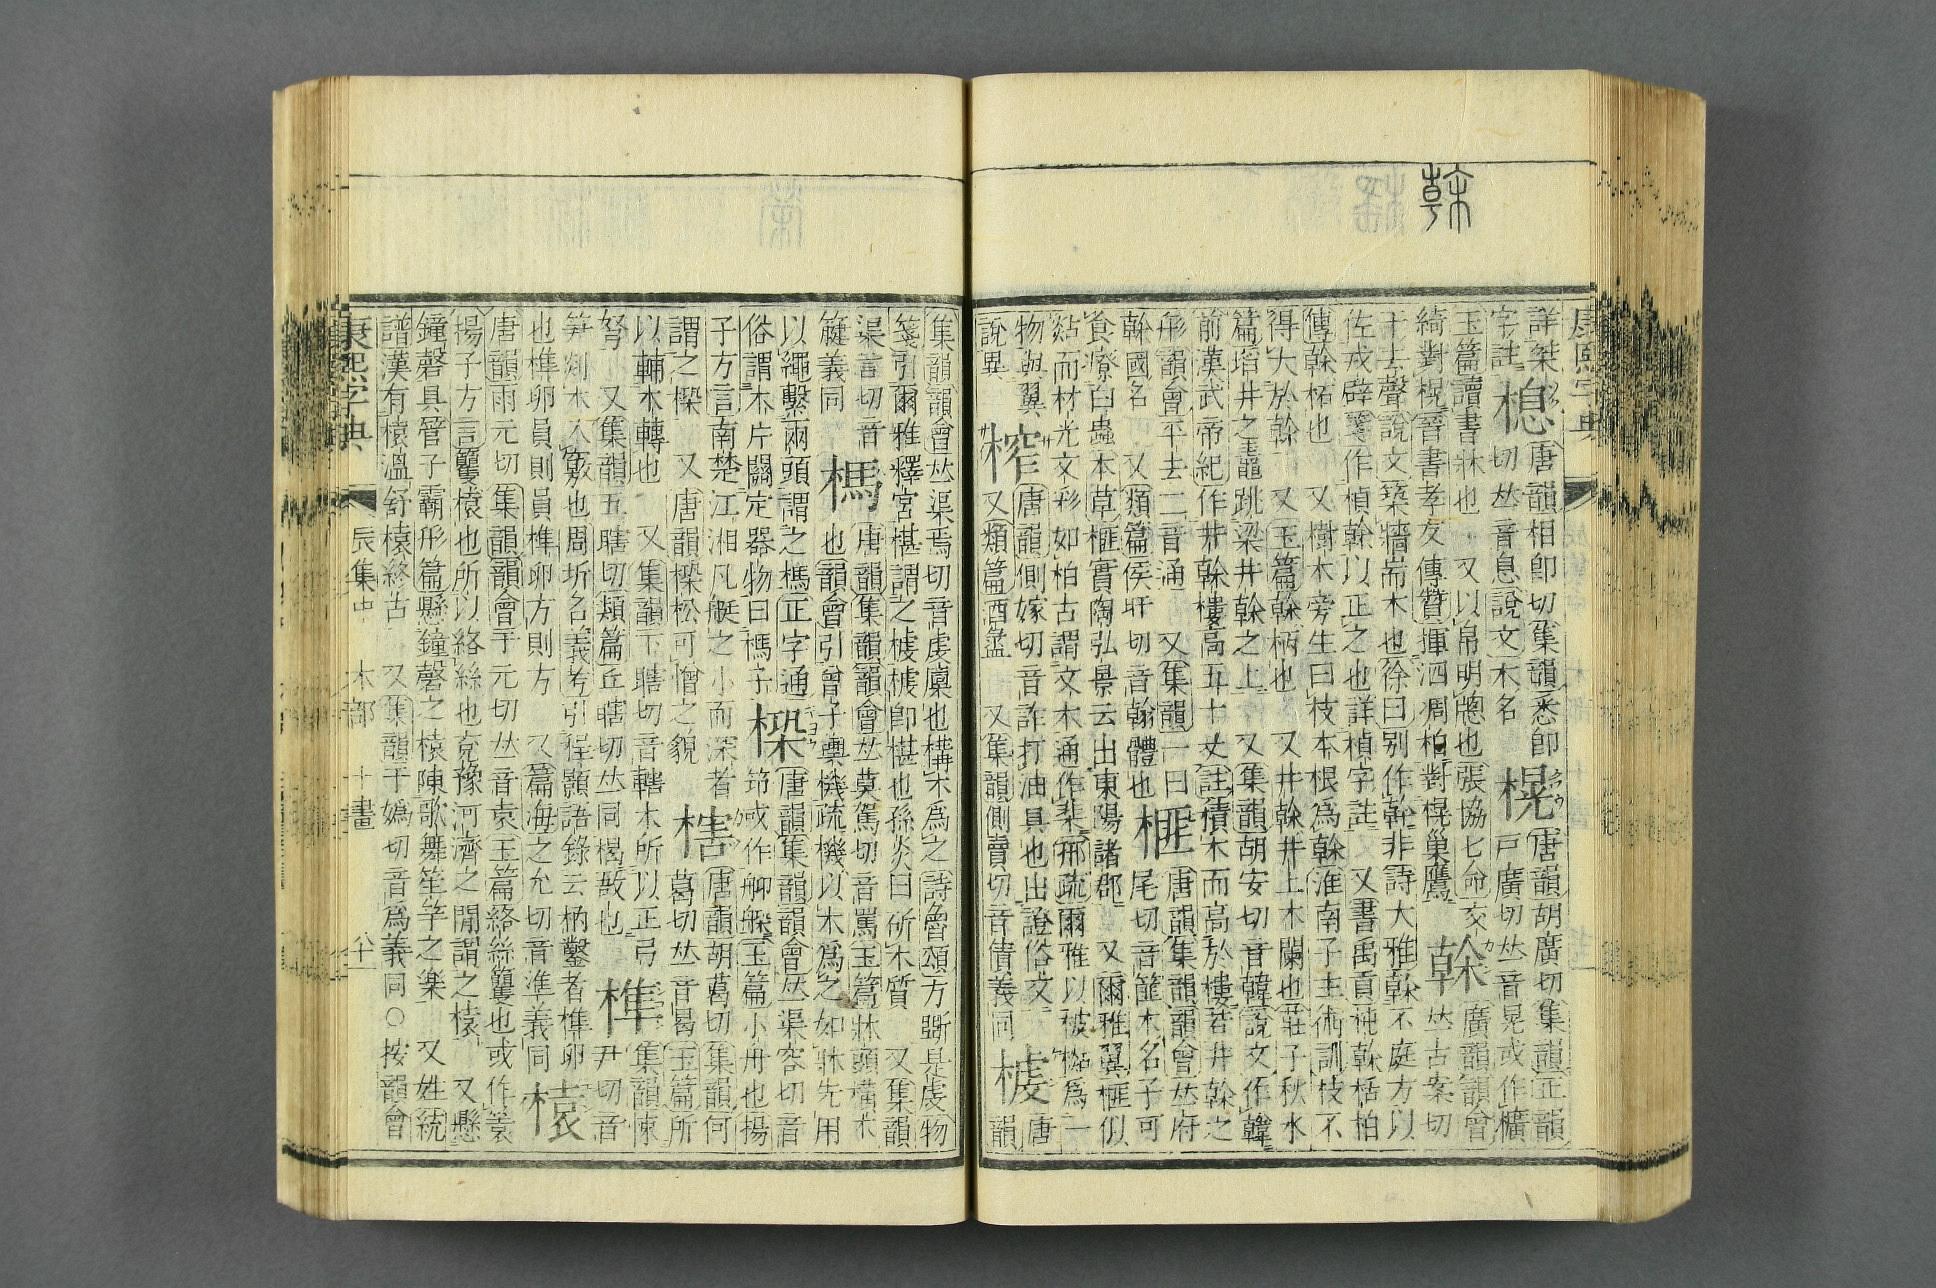 榦
康熙字典
詳桀 㮩 唐韻相卽切集韻悉卽 榥 唐韻胡廣切集韻正韻
字註 切𠀤音息說文木名 戸廣切𠀤音晃或作櫎
玉篇讀書牀也 又以帛明牕也張協七命交 榦 廣韻韻會
綺對榥晉書孝友傳贊揮泗凋柏對榥巢鷹 𠀤古案切
干去聲說文築牆耑木也徐曰别作幹非詩大雅榦不庭方以
佐戎辟箋作楨榦以正之也詳楨字註 又書禹貢杶榦栝柏
傳榦柘也 又樹木旁生曰枝本根爲榦淮南子主術訓枝不
得大於榦 又玉篇榦柄也 又井榦井上木闌也莊子秋水
篇埳井之鼃跳梁井榦之上 又集韻胡安切音韓說文作韓
前漢武帝紀作井榦樓高五十丈註積木而高於樓若井榦之
形韻會平去二音通 又集韻一曰 榧 唐韻集韻韻會𠀤府
榦國名 又類篇侯旰切音翰體也 尾切音篚木名子可
食療白蟲本草榧實陶弘景云出東陽諸郡 又爾雅翼榧似
煔而材光文彩如柏古謂文木通作棐邢疏爾雅以柀爲一
物與翼 榨 唐韻側嫁切音詐打油具也出證俗文 榩 唐
說異 又類篇酒盝 又集韻側賣切音債義同 韻
集韻韻會𠀤渠焉切音虔廩也構木爲之詩魯頌方斲是虔物
箋引爾雅釋宮椹謂之榩榩卽椹也孫炎曰斫木質 又集韻
渠言切音 榪 唐韻集韻韻會𠀤莫駕切音罵玉篇牀頭橫木
犍義同 也韻會引曾子輿機疏機以木爲之如牀先用
以繩繫兩頭謂之榪正字通 㮪 唐韻集韻韻會𠀤渠容切音
俗謂木片關定器物曰榪子 筇或作舼䑸玉篇小舟也揚
子方言南楚江湘凡艇之小而深者 㮫 唐韻胡葛切集韻何
謂之㮪 又唐韻㮪松可憎之貌 葛切𠀤音曷玉篇所
以輔木轉也 又集韻下瞎切音轄木所以正弓 榫 集韻竦
弩 又集韻五瞎切類篇丘瞎切𠀤同楬敔也 尹切音
筍剡木入竅也周圻名義考引程顥語錄云枘鑿者榫卯
也榫卯員則員榫卯方則方 又篇海之允切音準義同 榬
唐韻雨元切集韻韻會于元切𠀤音袁玉篇絡絲籰也或作䈠
揚子方言籰榬也所以絡絲也兗豫河濟之閒謂之榬 又懸
鐘磬具管子霸形篇懸鐘磬之榬陳歌舞笙竽之樂 又姓統
譜漢有榬溫舒榬終古 又集韻于嬀切音爲義同○按韻會
康熙字典 辰集中 木部 十畫